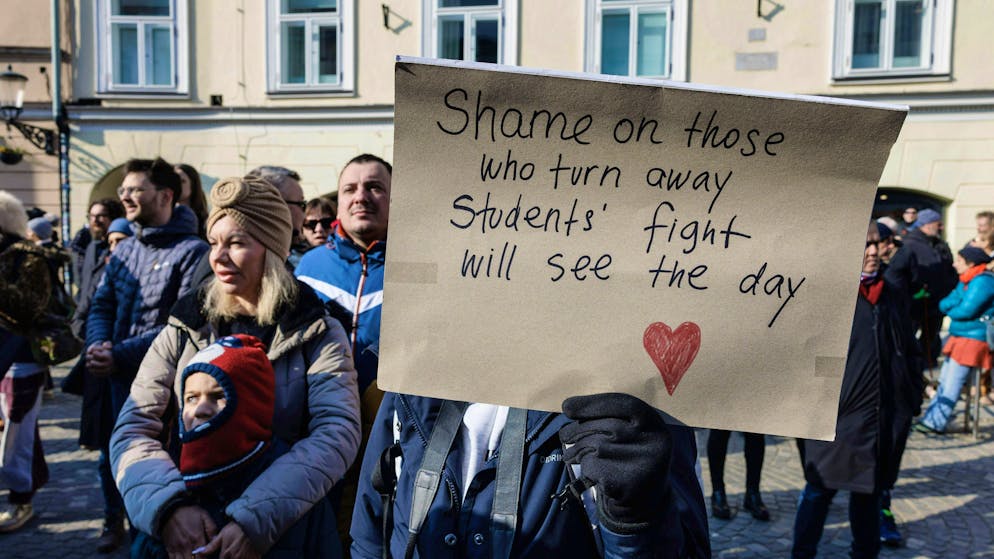 Shame on those
who turn away
Students' fight
will see the day